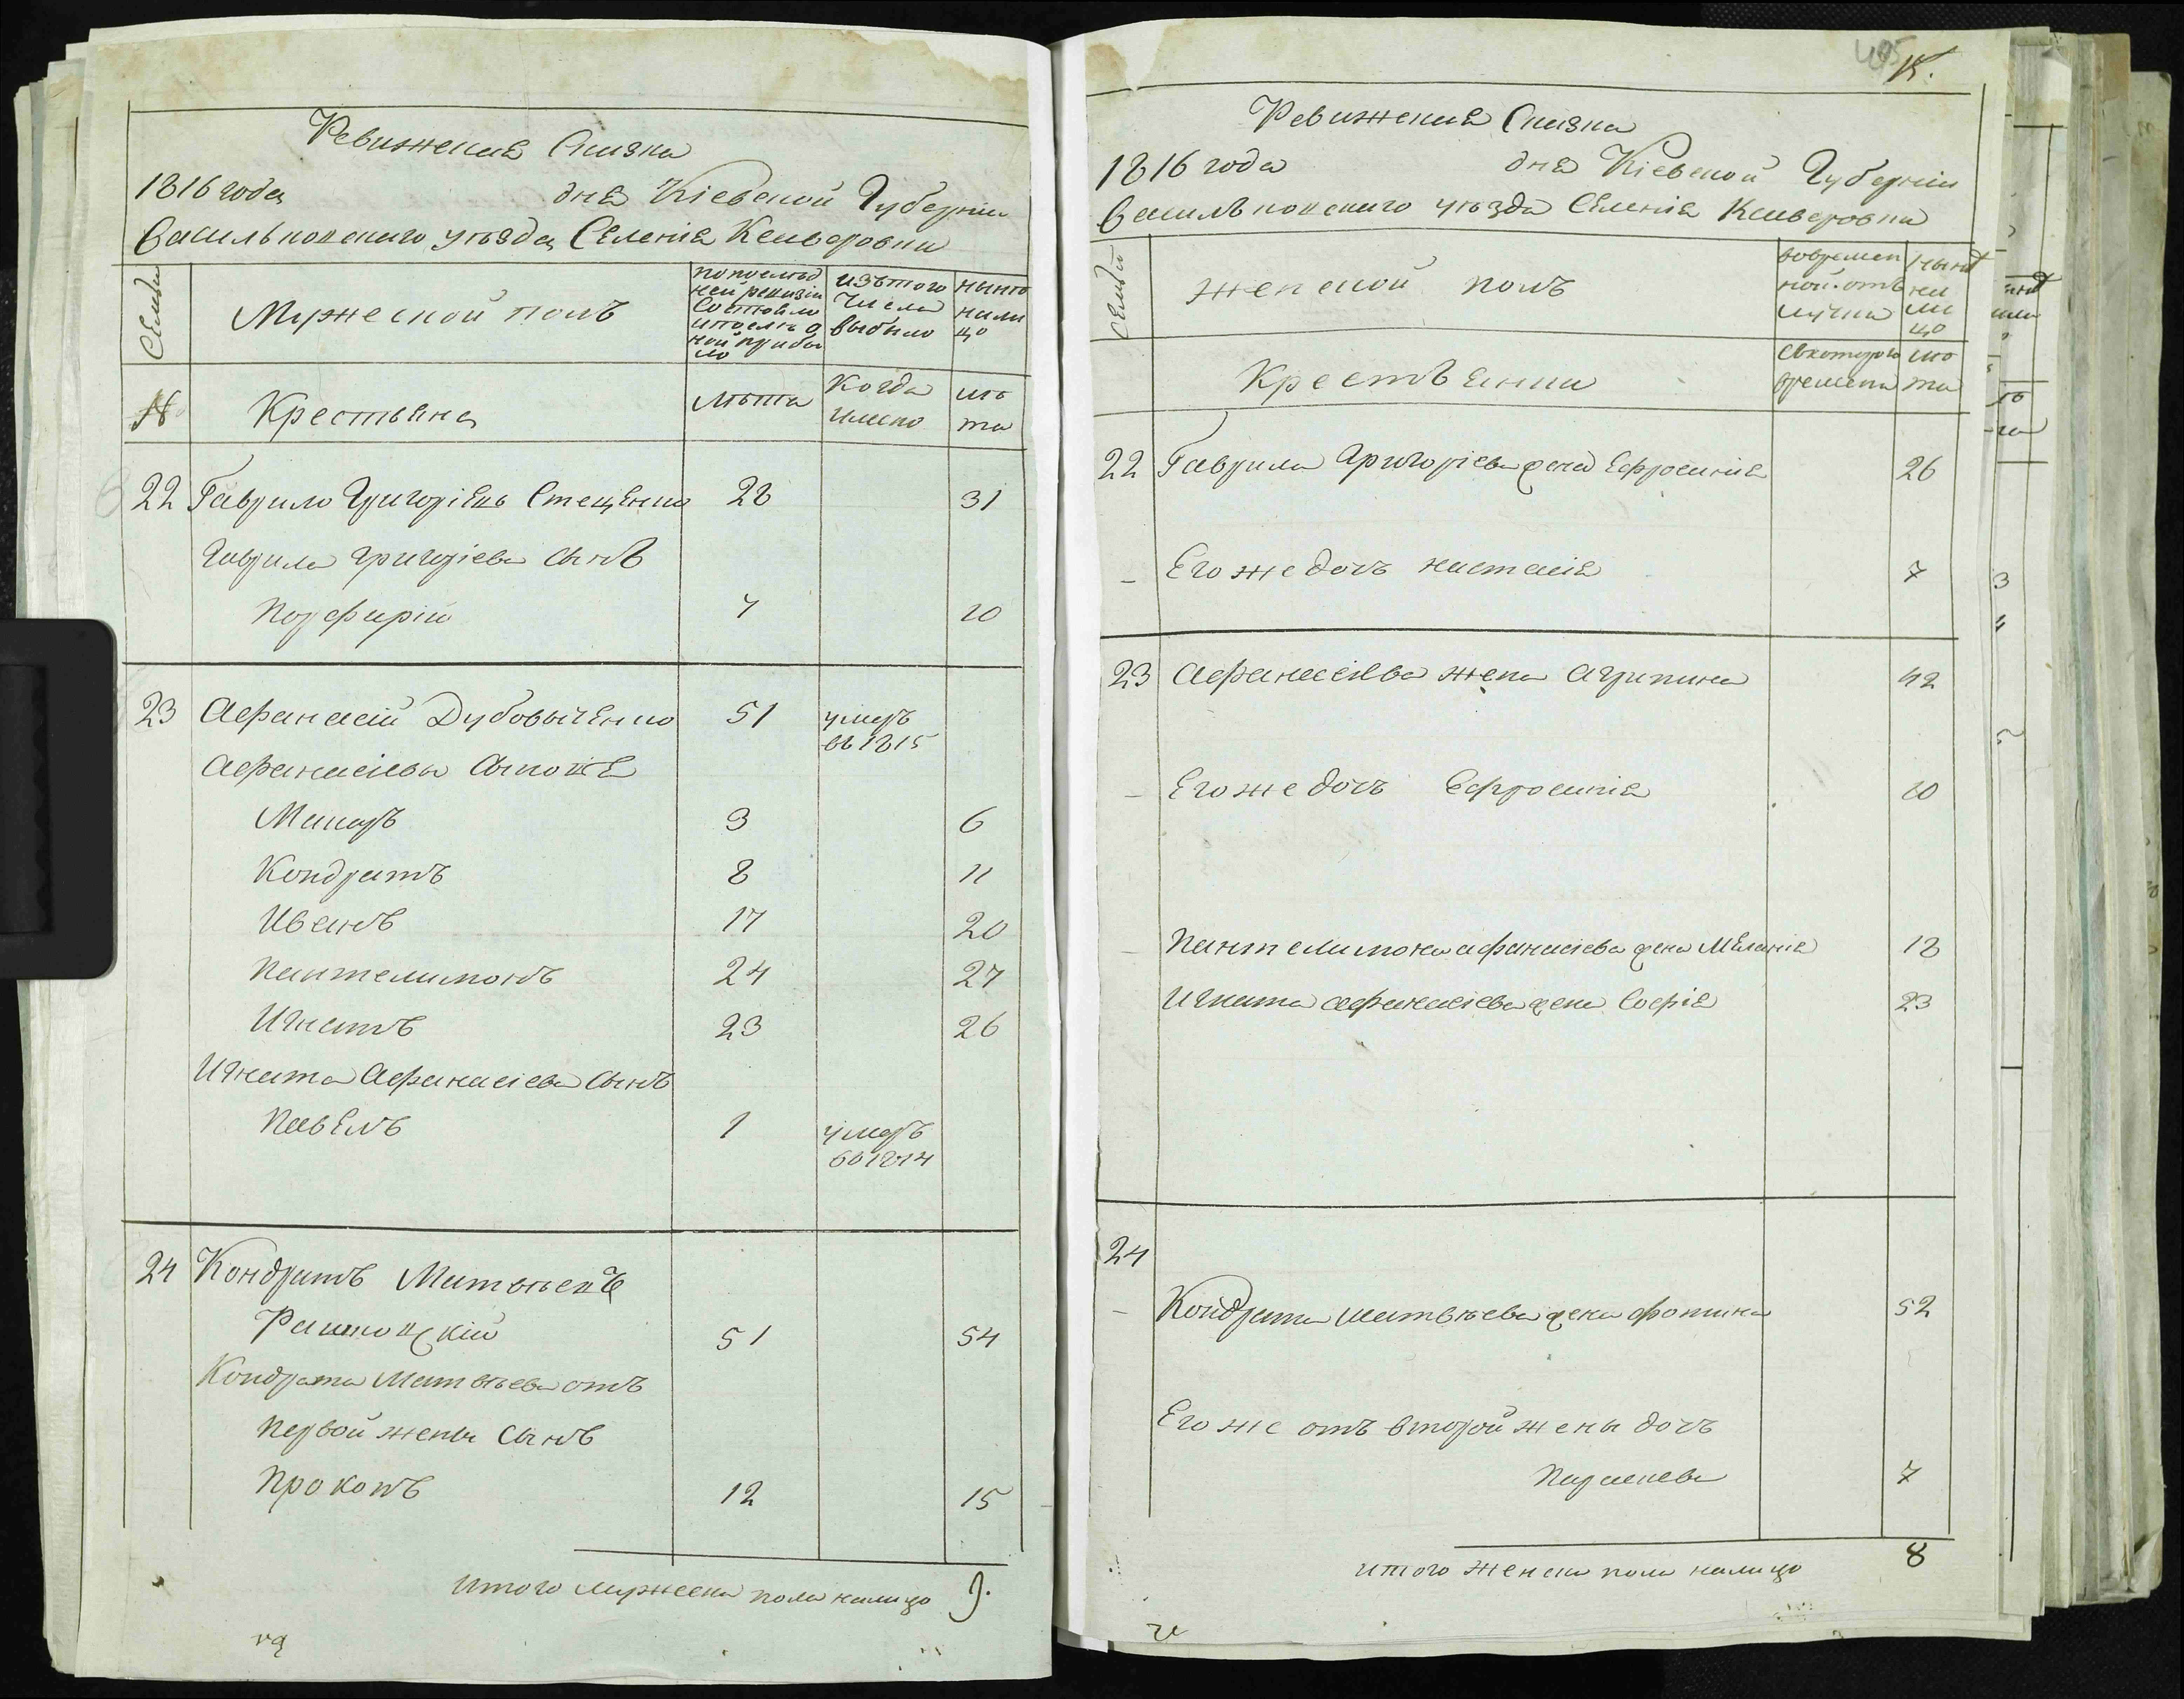 Ревижския Сказка
1816 года дня Кіевской Губерніи
Васильковскаго уѣзда Селенія Ксаверовки
Семьи
Мужеской полъ
попослѣд
ней ревизіи
состояло
и послѣ о
ной прибы
ло
изътого
числа
выбыло
нынѣ
нали
цо
№
Крестьяна
лѣта
Когда
имено
лѣ
та
22 Гаврило Григоріевъ Стеценко 28 31
Гаврила Григоріева сынъ
Порфирій 7 10
23 Афанасій Дубовыченко 51 умеръ
въ 1815
Афанасіевы сыновЕ
Макаръ 3 6
Кондратъ 8 11
Иванъ 17 20
Пантелимонъ 24 27
Игнатъ 23 26
Игната Афанасіева сынъ
Павелъ 1 умеръ
въ 1814
24 Кондратъ Матвѣевъ
51 54
Кондрата Матвѣева отъ
первой жены сынъ
Прокопъ 12 15
Итого мужеска пола налицо 9.
495
15.
Ревижския Сказка
1816 года дня Кіевской Губерніи
Васильковскаго уѣзда Селенія Ксаверовки
Семьи
женской полъ
вовремен
ной отъ
лучки
нынѣ
на
ли
цо
Крестьянки
Скотораго
времени
лѣ
та
22 Гаврила Григоріева жена Ефросинія 26
- Его же дочь Настасія 7
23 Афанасіева жена Агрипина 42
- Его же дочь Ефросинія 10
- Пантелимона афанасіева жена Меланія 18
Игната афанасіева жена Софія 23
24
- Кондрата матвѣева жена фотина 52
Его же отъ второй жены дочь
Параскева 7
итого женска пола налицо 8